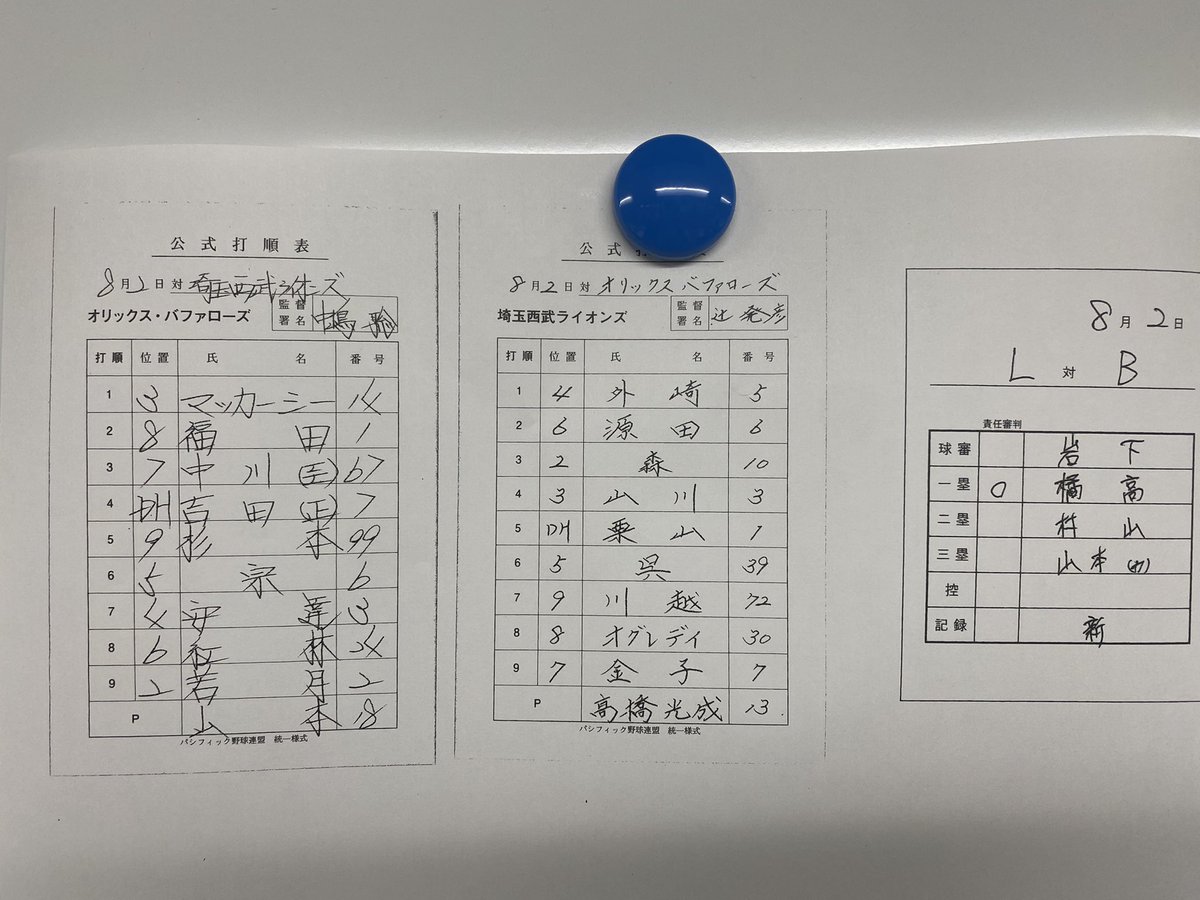 公式打順表
8月2日対 埼玉西武ライオンズ
オリックス・バファローズ 監督署名 中嶋 聡
打順 位置 氏名 番号
1 3 マッカーシー 14
2 8 福田 1
3 7 中川(圭) 67
4 DH 吉田(正) 7
5 9 杉本 99
6 5 宗 6
7 4 安達 3
8 6 紅林 24
9 2 若月 2
P 山本 18
パシフィック野球連盟 統一様式
公式打
8月2日対 オリックスバファローズ
埼玉西武ライオンズ 監督署名 辻 発彦
打順 位置 氏名 番号
1 4 外崎 5
2 6 源田 6
3 2 森 10
4 3 山川 3
5 DH 栗山 1
6 5 呉 39
7 9 川越 72
8 8 オグレディ 30
9 7 金子 7
P 高橋光成 13
パシフィック野球連盟 統一様式
8月2日
L 対 B
責任審判
球審 岩下
一塁 ○ 橘高
二塁 村山
三塁 山本
控
記録 新